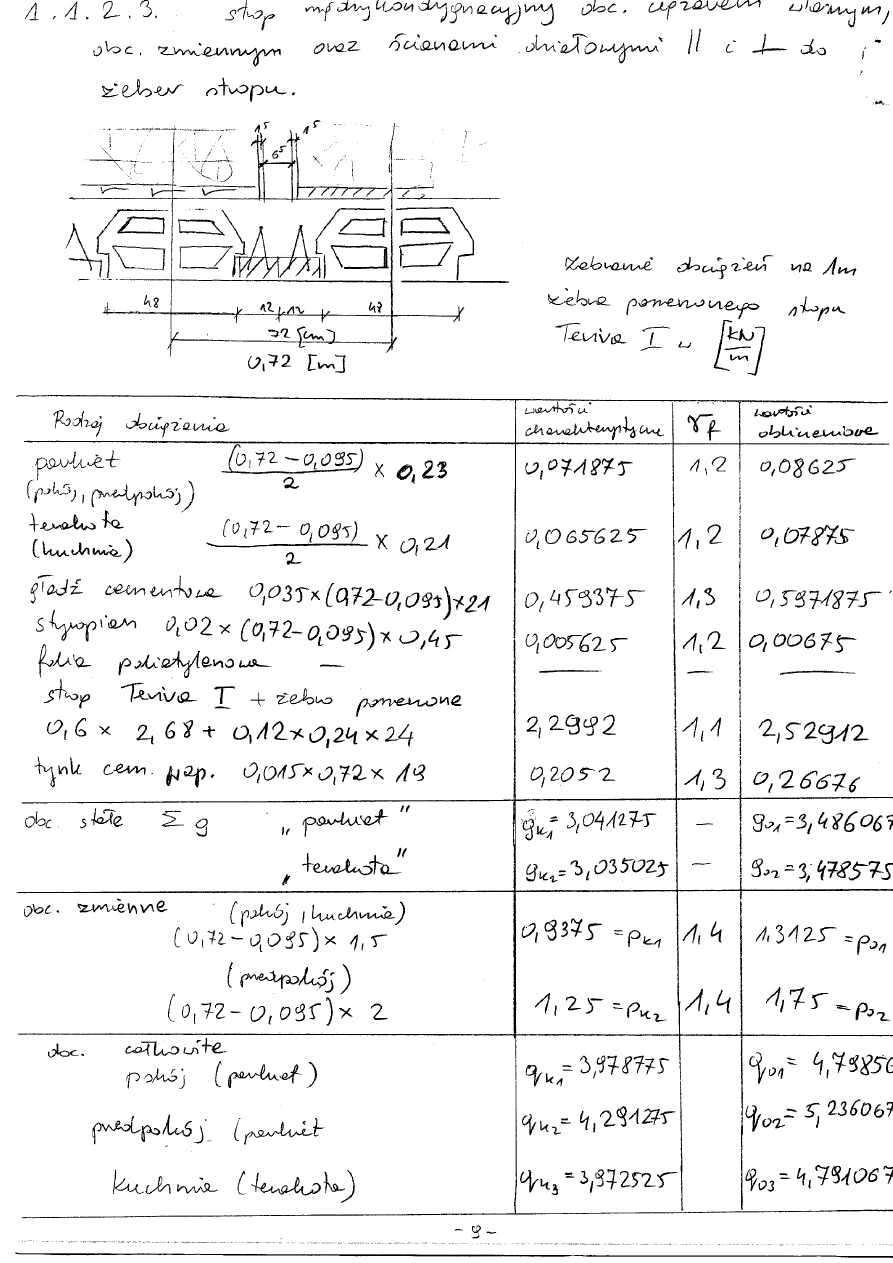 1.1.2.3. strop międzykondygnacyjny obc. ciężarem własnym,
obc. zmiennym oraz ścianami działowymi || i ⊥ do
żeber stropu.
15 15
65
48 12 12 48
72 [cm]
0,72 [m]
Zebranie obciążeń na 1m
żebra poszerzonego stropu
Teriva I w [kN/m]
Rodzaj obciążenia wartości charakterystyczne γf wartości obliczeniowe
parkiet (pokój, przedpokój) (0,72-0,095)/2 × 0,23 0,071875 1,2 0,08625
terakota (kuchnia) (0,72-0,095)/2 × 0,21 0,065625 1,2 0,07875
gładź cementowa 0,035×(0,72-0,095)×21 0,459375 1,3 0,5971875
styropian 0,02×(0,72-0,095)×0,45 0,005625 1,2 0,00675
folia polietylenowa — — — —
strop Teriva I + żebro poszerzone
0,6 × 2,68 + 0,12×0,24×24 2,2992 1,1 2,52912
tynk cem. wap. 0,015×0,72×19 0,2052 1,3 0,26676
obc. stałe Σ g „parkiet” gk1=3,041275 — go1=3,486067
„terakota” gk2=3,035025 — go2=3,478575
obc. zmienne (pokój, kuchnia)
(0,72-0,095)× 1,5 0,9375 =pk1 1,4 1,3125 =po1
(przedpokój)
(0,72-0,095)× 2 1,25 =pk2 1,4 1,75 =po2
obc. całkowite
pokój (parkiet) qk1=3,978775 qo1= 4,79856
przedpokój (parkiet qk2=4,291275 qo2= 5,236067
Kuchnia (terakota) qk3=3,972525 qo3=4,791067
- 9 -